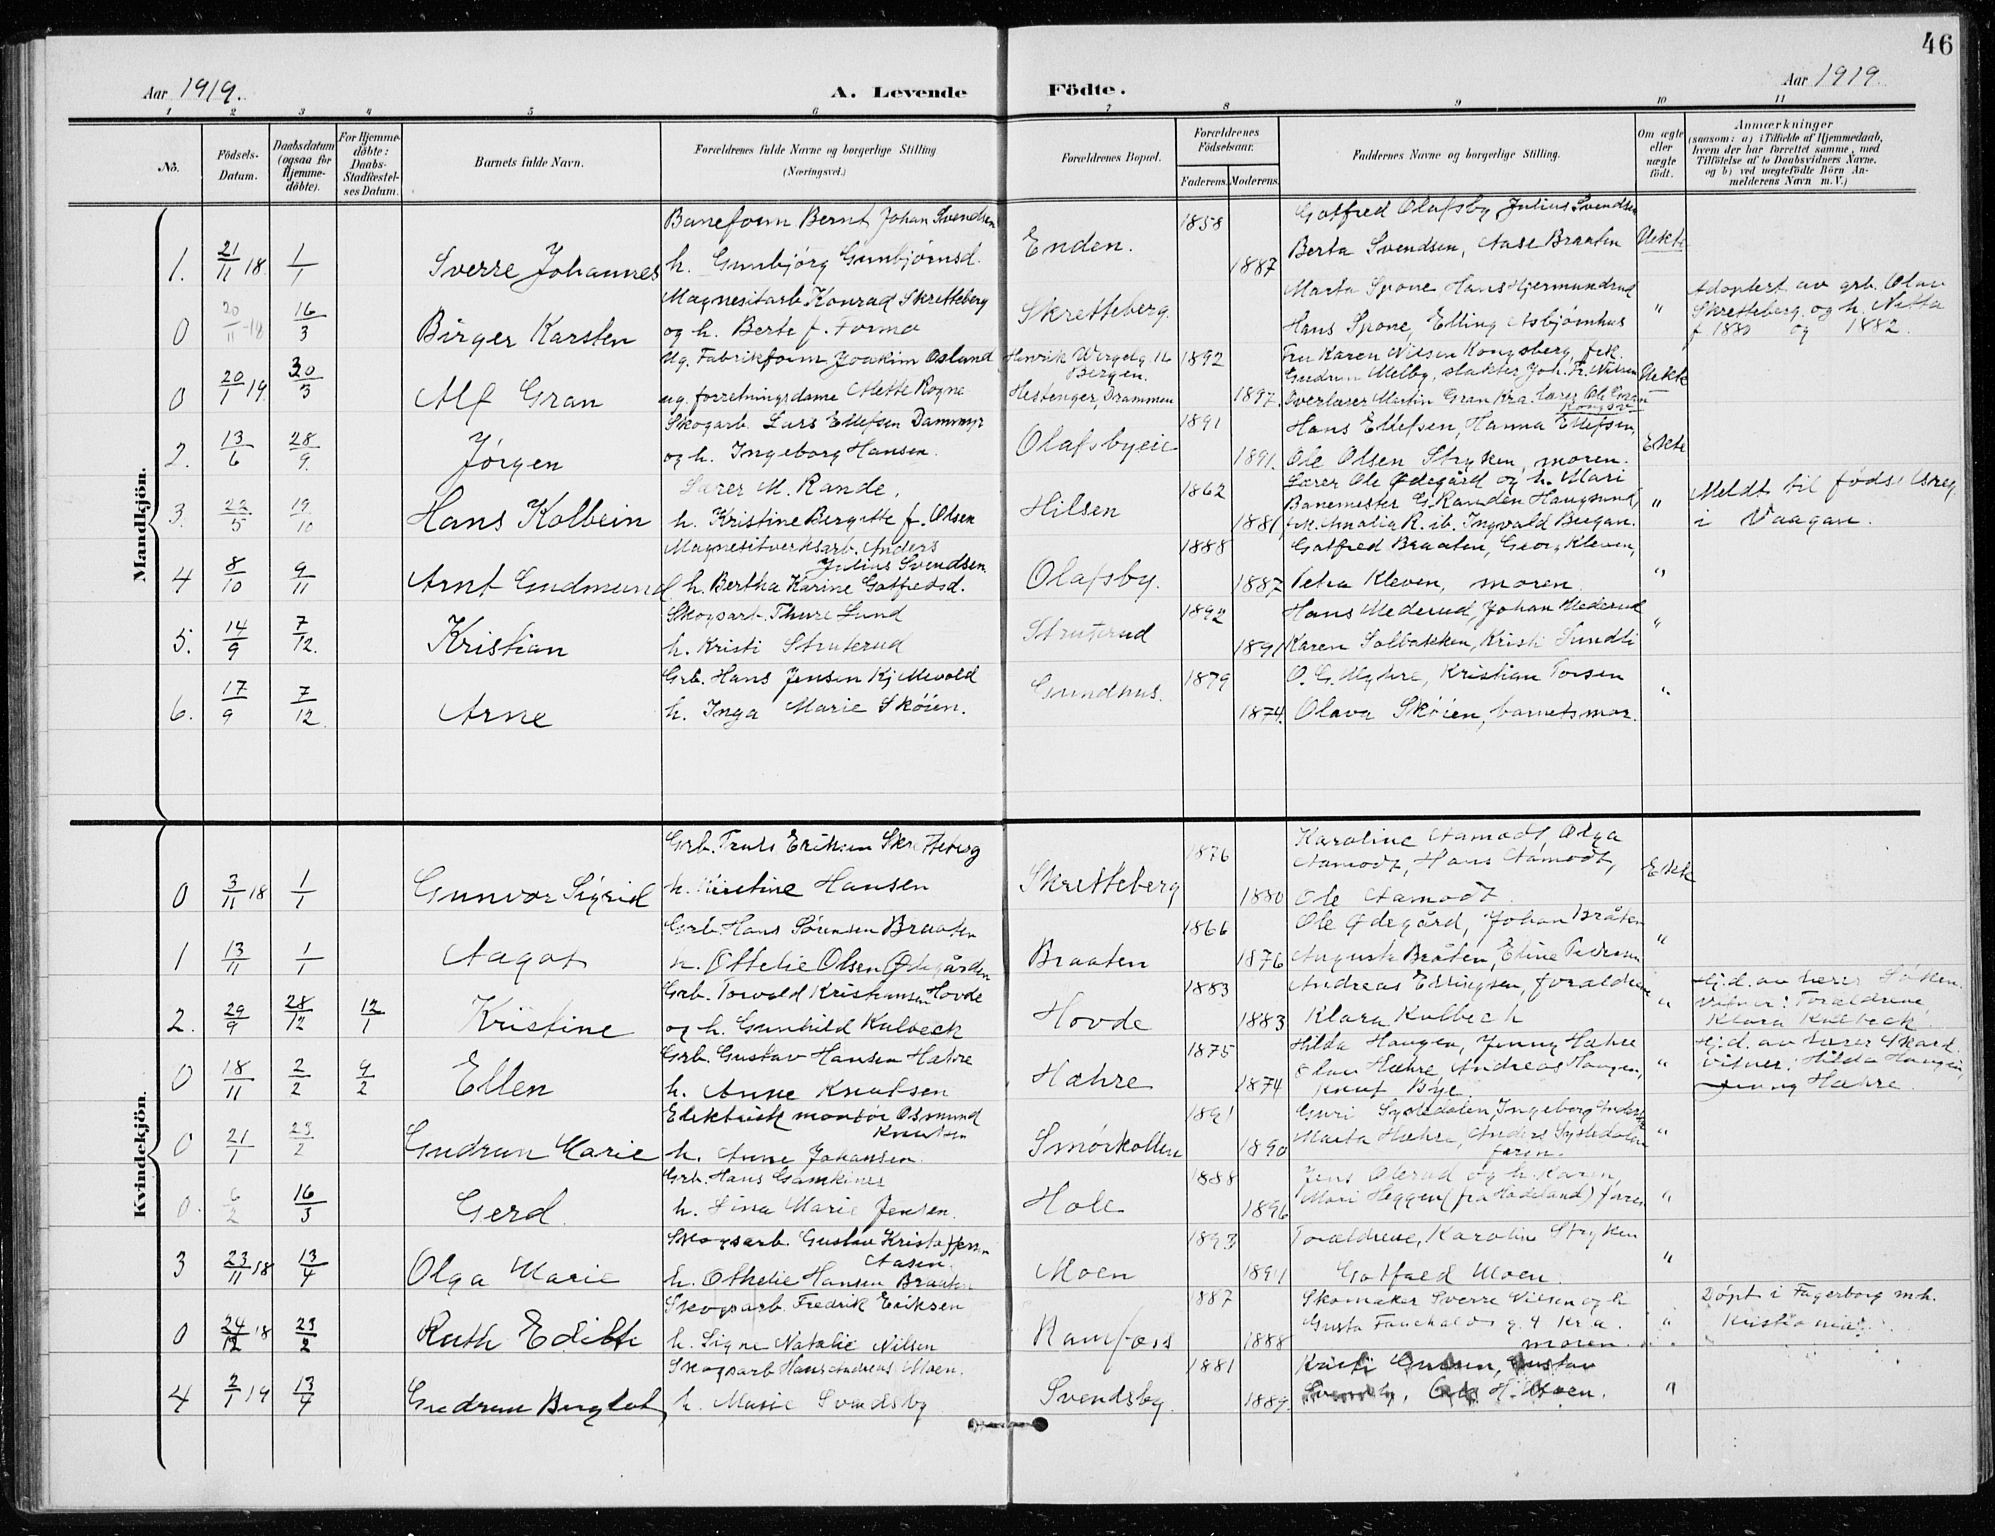 46
Aar 1919.
A. Levende Födte.
Aar 1919.
1 2 3 4 5 6 7 8 9 10 11
No.
Födsels-Datum.
Daabsdatum (ogsaa for Hjemme-döbte).
For Hjemme-döbte: Daabs-Stadfæstel-ses Datum.
Barnets fulde Navn.
Forældrenes fulde Navne og borgerlige Stilling
(Næringsvei.)
Forældrenes Bopæl.
Forældrenes Födselsaar.
Faderens. Moderens.
Faddernes Navne og borgerlige Stilling.
Om ægte eller uægte födt.
Anmærkninger
(saasom: a) i Tilfælde af Hjemmedaab, hvem der har forrettet samme, med Tilföielse af to Daabsvidners Navne, og b) ved uægtefödte Börn An-melderens Navn m. V.)
Mandkjön.
Baneform. Bernt Johan Svendsen 1858 Gotfred Olafsby Julius Svendsen
1. 21/11 18 1/1 Sverre Johannes h. Gunbjørg Gunbjørnsd. Enden. 1887 Berta Svendsen, Aase Braaten Uekte
Magnesitarb. Konrad Skretteberg Marta Spone Hans Hjermundrud Adoptert av grb. Olav
0 20/11-18 16/3 Birger Karsten og h. Berte f. Formo Skretteberg. Hans Spone, Elling Asbjørnhus " Skretteberg og h. Netta
f 1880 og 1882.
Ug. Fabrikform Joakim Osland Henrik Wergelg. 16 Bergen. 1892 Fru Karen Nilsen Kongsberg, frk.
0 20/1 19 30/3 Alf Gran ug. forretningsdame Mette Rogne Hestenger, Drammen 1897. Gudrun Melby, slakter Joh. Fr. Nilsen Uekte
Overlærer Martin Gran Kra. Lærer Ole Gran Kongsv.
Skogarb. Lars Ellefsen Dammyr 1891 Hans Ellefsen, Hanna Ellefsen,
2. 13/6 28/9. Jørgen og h. Ingeborg Hansen. Olafsbyeie 1891. Ole Olsen Stryken, moren. Ekte
Lærer M. Rande, 1862 Lærer Ole Ødegård og h. Mari
3. 22/5 19/10 Hans Kolbein h. Kristine Bergitte f. Olsen Hilsen 1881 Banemester G. Randen Haugsund, " Meldt til fødselsreg.
frk. Amalia R. ib. Ingvald Bergan. i Vaagan.
Magnesitverksarb. Anders Julius Svendsen 1888 Gotfred Braaten, Georg Kleven,
4 8/10 9/11 Arnt Gudmund h. Bertha Karine Gotfredsd. Olafsby. 1887 Petra Kleven, moren "
Skogsarb. Thure Lund 1892 Hans Mederud, Johan Mederud
5. 14/9 7/12. Kristian h. Kristi Struterud Struterud 1891 Karen Solbakken, Kristi Sundli "
Grb. Hans Jensen Kjemevold 1879 O. G. Myhre, Kristian Torsen
6. 17/9 7/12 Arne h. Inga Marie Skøien. Grindhus. 1874. Olava Skøien, barnets mor. "
Kvindekjön.
Grb. Truls Eriksen Skretteberg 1876 Karoline Aamodt Olga
Aamodt, Hans Aamodt,
0 3/11 18 1/1 Gunvor Sigrid h. Kirstine Hansen Skretteberg 1880 Ole Aamodt. Ekte
Grb. Hans Sørensen Braaten 1866 Ole Ødegård, Johan Bråten
1 13/11 1/1 Aagot h. Othelie Olsen Ødegården Braaten 1876 Augusta Bråten, Eline Pedersen "
Grb. Torvald Kristiansen Hovde 1883 Andreas Erringsen, foraldrene Hj.d. av lærer Løken.
2. 29/9 28/12 12/1 Kristine og h. Gunhild Kulbeck Hovde 1883 Klara Kulbech " Vitner: Foraldrene
Klara Kulbeck.
Grb. Gustav Hansen Hæhre 1875 Hilda Haugen, Jenny Hæhre Hj.d. av lærer Skard.
0 18/11 2/2 9/2 Ellen h. Anne Knutsen Hæhre 1874 Olav Hæhre, Andreas Haugen, " Vitner: Hilda Haugen,
Knut Bye. Jenny Hæhre.
Elektrisk montør Osmund Knutsen 1891 Guri Systedalen, Ingeborg Anders
0 21/1 23/2 Gudrun Marie h. Anne Johansen. Smörkollen 1890 Marta Hæhre, Anders Systedalen "
faren.
Grb. Hans 1888 Jens Olerud og h. Karen,
0. 6/2 16/3 Gerd. h. Lina Marie Jensen. Hole 1896 Mari Heggen (fra Hadeland) faren "
Skogsarb. Gustav Kristoffersen Aasen. 1893 Foraldrene, Karoline Stryken
3 23/11 18 13/4 Olga Marie h. Othelie Hansen Braaten Moen 1891 Gotfred Moen. "
Skogsarb. Fredrik Eriksen 1887 Skomaker Sverre Nilsen og h. Døpt i Fagerborg mh.
0 24/12 18 23/2 Ruth Edith h. Signe Natalie Nilsen Ramfoss 1888 Gusta Fauchaldsg. 4 Kr.a. " Kristiania.
moren
Skogsarb Hans Andreas Moen. 1881 Gustav
4 2/1 19 13/4 Gudrun Bergliot h. Marie Svendsby Svendsby. 1889. H. Moen. "